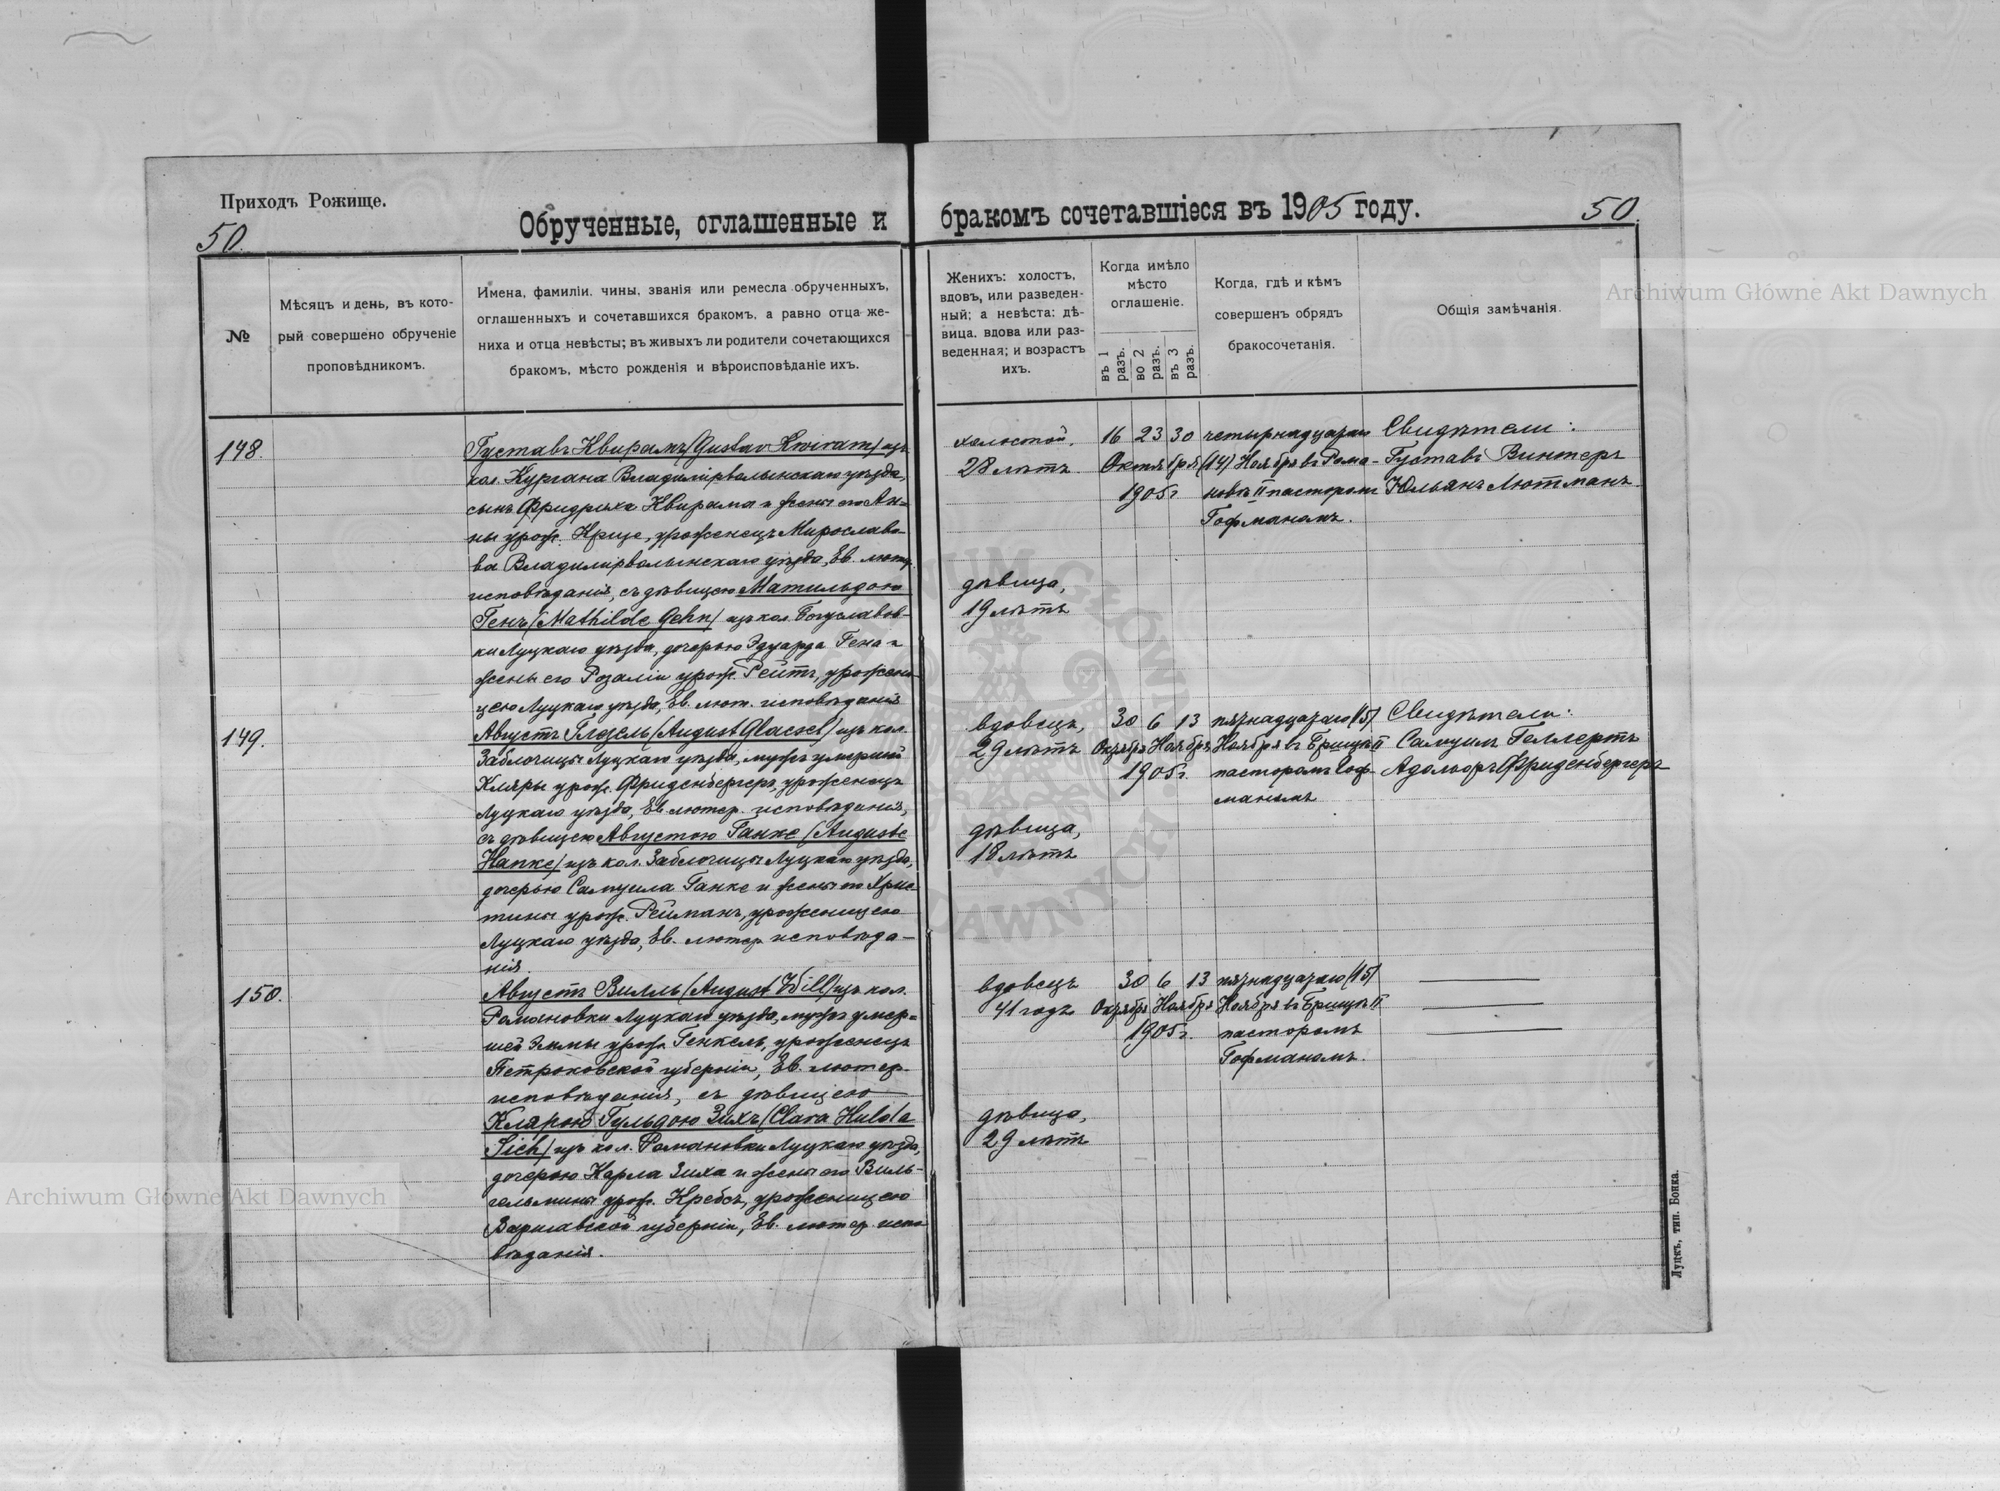 Приходъ Рожище.
50.
Обрученные, оглашенные и бракомъ сочетавшіеся въ 1905 году.
50.
№
Мѣсяцъ и день, въ кото-
рый совершено обрученіе
проповѣдникомъ.
Имена, фамиліи, чины, званія или ремесла обрученныхъ,
оглашенныхъ и сочетавшихся бракомъ, а равно отца же-
ниха и отца невѣсты; въ живыхъ ли родители сочетающихся
бракомъ, мѣсто рожденія и вѣроисповѣданіе ихъ.
Женихъ: холостъ,
вдовъ, или разведен-
ный; а невѣста: дѣ-
вица, вдова или раз-
веденная; и возрастъ
ихъ.
Когда имѣло
мѣсто
оглашеніе.
въ 1 разъ.
во 2 разъ.
въ 3 разъ.
Когда, гдѣ и кѣмъ
совершенъ обрядъ
бракосочетанія.
Общія замѣчанія.
148.
Густавъ Квирамъ (Gustav Kwiram) изъ
кол. Кургана Владимірволынскаго уѣзда,
сынъ Фридриха Квирама и жены его Ан-
ны урож. Криде, уроженецъ Мирославо-
ва Владимірволынскаго уѣзда, Ев. лютер.
исповѣданія, съ дѣвицею Матильдою
Генъ (Mathilde Gehn) изъ кол. Богуславов-
ки Луцкаго уѣзда, дочерью Эдуарда Гена и
жены его Розаліи урож. Рейтъ, урожени-
цею Луцкаго уѣзда, Ев. лют. исповѣданія
холостой,
28 лѣтъ
дѣвица,
19 лѣтъ
16 23 30
Октября
1905 г.
четырнадцатаго
(14) Ноября въ Рома-
новѣ II пасторомъ
Гофманомъ.
Свидѣтели:
Густавъ Винтеръ
Юльянъ Лютманъ
149.
Августъ Глэзель (August Glaesel) изъ кол.
Заблочицы Луцкаго уѣзда, мужъ умершей
Кляры урож. Фриденбергеръ, уроженецъ
Луцкаго уѣзда, Ев. лютер. исповѣданія,
съ дѣвицею Августою Ганке (Auguste
Hanke) изъ кол. Заблочицы Луцкаго уѣзда,
дочерью Самуила Ганке и жены его Хрис-
тины урож. Рейманъ, уроженицею
Луцкаго уѣзда, Ев. лютер. исповѣда-
нія.
вдовецъ,
29 лѣтъ
дѣвица,
18 лѣтъ
30 6 13
Октября Ноября
1905 г.
пятнадцатаго (15)
Ноября въ Брищѣ II
пасторомъ Гоф-
маномъ
Свидѣтели:
Самуилъ Геллертъ
Адольфъ Фриденбергеръ
150.
Августъ Вилль (August Will) изъ кол.
Романовки Луцкаго уѣзда, мужъ умер-
шей Эммы урож. Генкель, уроженецъ
Петроковской губерніи, Ев. лютер.
исповѣданія, съ дѣвицею
Клярою Гульдою Зихъ (Clara Hulda
Sich) изъ кол. Романовки Луцкаго уѣзда,
дочерью Карла Зиха и жены его Виль-
гельмины урож. Кребсъ, уроженицею
Варшавской губерніи, Ев. лютер. испо
вѣданія.
вдовецъ
41 годъ
дѣвица,
29 лѣтъ
30 6 13
Октября Ноября
1905 г.
пятнадцатаго (15)
Ноября въ Брищѣ II
пасторомъ
Гофманомъ.
Луцкъ, тип. Бонка.
Archiwum Główne Akt Dawnych
Archiwum Główne Akt Dawnych